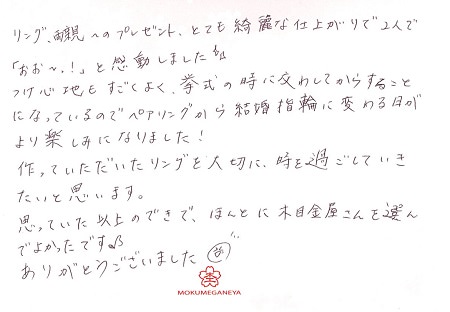 リング、両親へのプレゼント、とても綺麗な仕上がりで2人で
「おお〜、!」と感動しました♪
つけ心地もすごくよく、挙式の時に交わしてからすること
になっているのでペアリングから結婚指輪に変わる日が
より楽しみになりました!
作っていただいたリングを大切に、時を過ごしていき
たいと思います。
思っていた以上のできで、ほんとに木目金屋さんを選ん
でよかったです♪
ありがとうございました
MOKUMEGANEYA